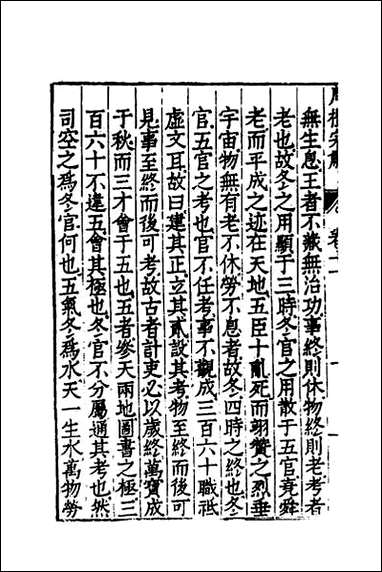 無生息王者不藏無治功事終則休物終則老考者
老也故冬之用顯于三時冬官之用散于五官堯舜
老而平成之迹在天地五臣十亂死而翊贊之烈垂
宇宙物無有老不休勞不息者故冬四時之終也冬
官五官之考也官不任考事不觀成三百六十職祗
虛文耳故曰建其正立其貳設其考物至終而後可
見事至終而後可考故古者計吏必以歲終萬寶成
于秋而三才會于五也五者參天兩地圖書之極三
百六十不違五會其極也冬官不分屬通其考也然
司空之爲冬官何也五氣冬爲水天一生水萬物勞
卷十一